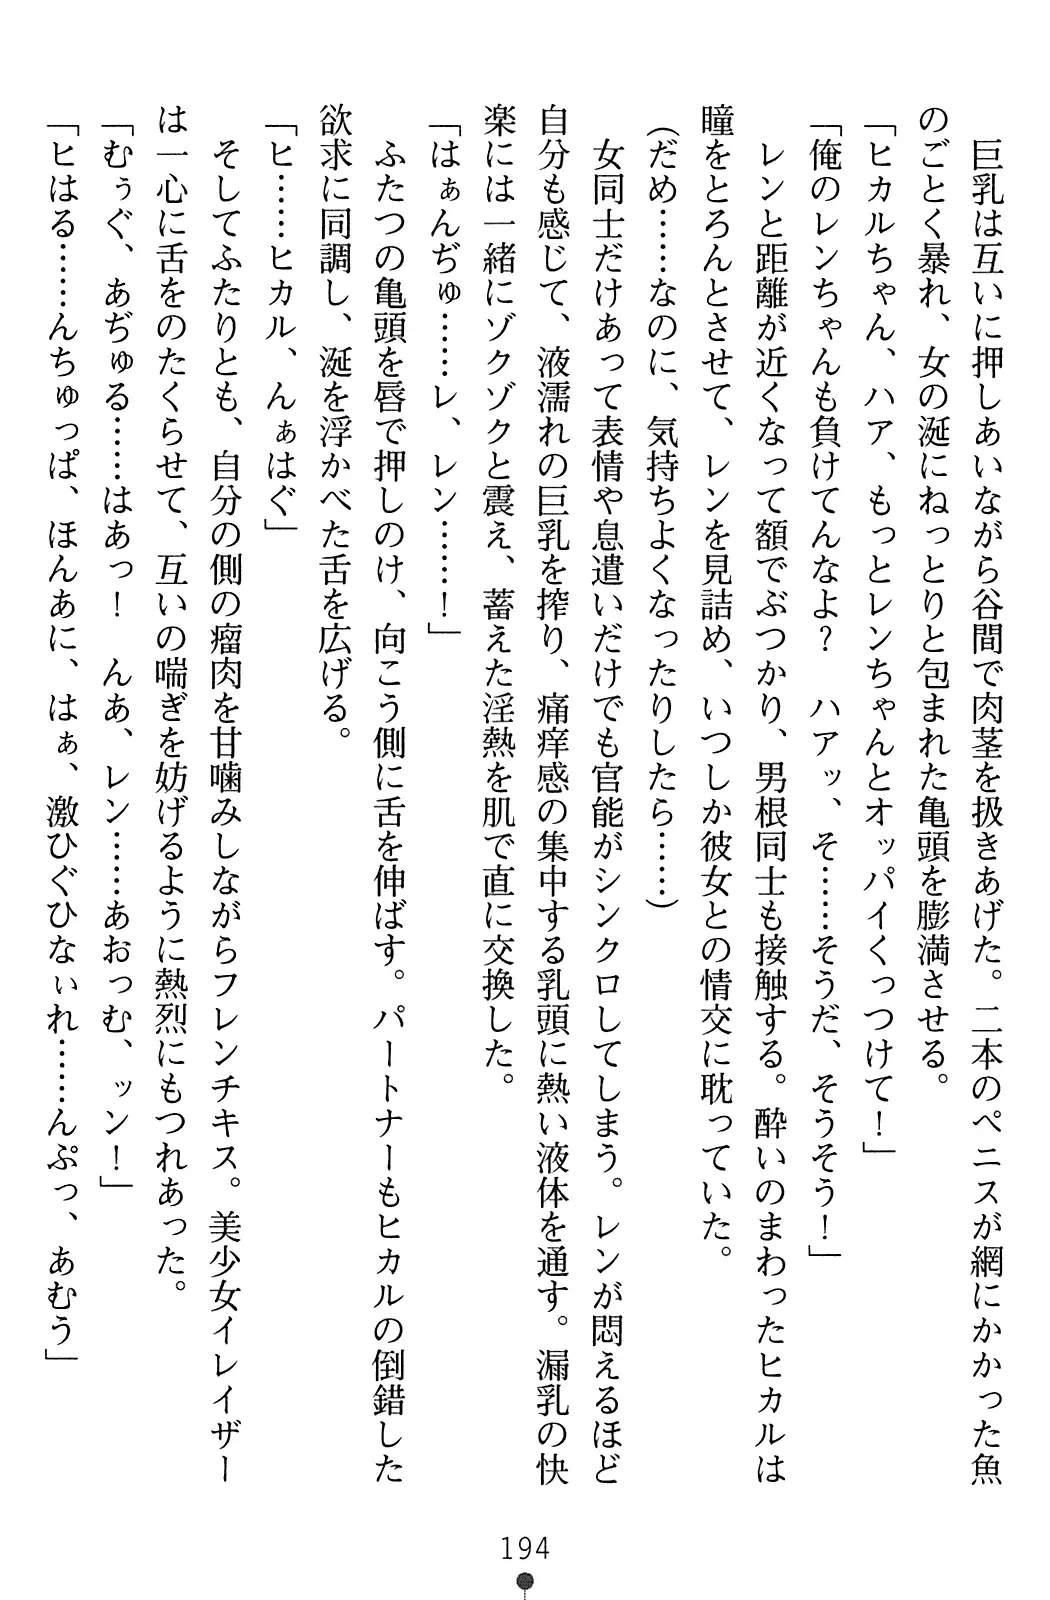 巨乳は互いに押しあいながら谷間で肉茎を扱きあげた。二本のペニスが網にかかった魚
のごとく暴れ、女の涎にねっとりと包まれた亀頭を膨満させる。
「ヒカルちゃん、ハア、もっとレンちゃんとオッパイくっつけて！」
「俺のレンちゃんも負けてんなよ？　ハアッ、そ……そうだ、そうそう！」
レンと距離が近くなって額でぶつかり、男根同士も接触する。酔いのまわったヒカルは
瞳をとろんとさせて、レンを見詰め、いつしか彼女との情交に耽っていた。
（だめ……なのに、気持ちよくなったりしたら……）
女同士だけあって表情や息遣いだけでも官能がシンクロしてしまう。レンが悶えるほど
自分も感じて、液濡れの巨乳を搾り、痛痒感の集中する乳頭に熱い液体を通す。漏乳の快
楽には一緒にゾクゾクと震え、蓄えた淫熱を肌で直に交換した。
「はぁんぢゅ……レ、レン……！」
ふたつの亀頭を唇で押しのけ、向こう側に舌を伸ばす。パートナーもヒカルの倒錯した
欲求に同調し、涎を浮かべた舌を広げる。
「ヒ……ヒカル、んぁはぐ」
そしてふたりとも、自分の側の瘤肉を甘噛みしながらフレンチキス。美少女イレイザー
は一心に舌をのたくらせて、互いの喘ぎを妨げるように熱烈にもつれあった。
「むぅぐ、あぢゅる……はあっ！　んあ、レン……あおっむ、ッン！」
「ヒはる……んちゅっぱ、ほんあに、はぁ、激ひぐひなぃれ……んぷっ、あむう」
194